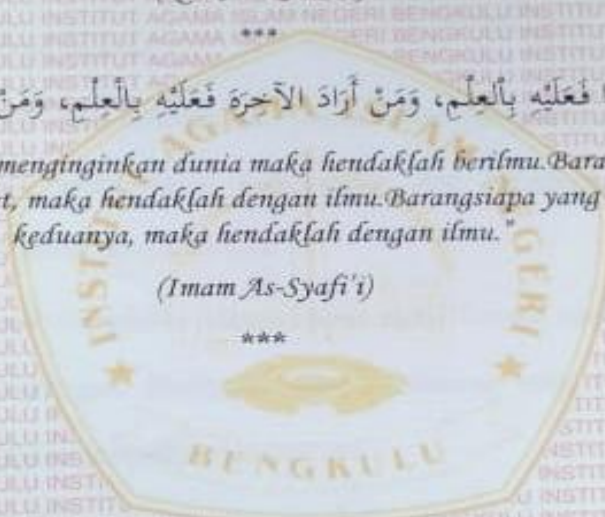 ***
فَعَلَيْهِ بِالْعِلْمِ، وَمَنْ أَرَادَ الآخِرَةَ فَعَلَيْهِ بِالْعِلْمِ، وَمَنْ
menginginkan dunia maka hendaklah berilmu.Bara
t, maka hendaklah dengan ilmu.Barangsiapa yang
keduanya, maka hendaklah dengan ilmu."
(Imam As-Syafi'i)
***
INSTITUT AGAMA ISLAM NEGERI
BENGKULU